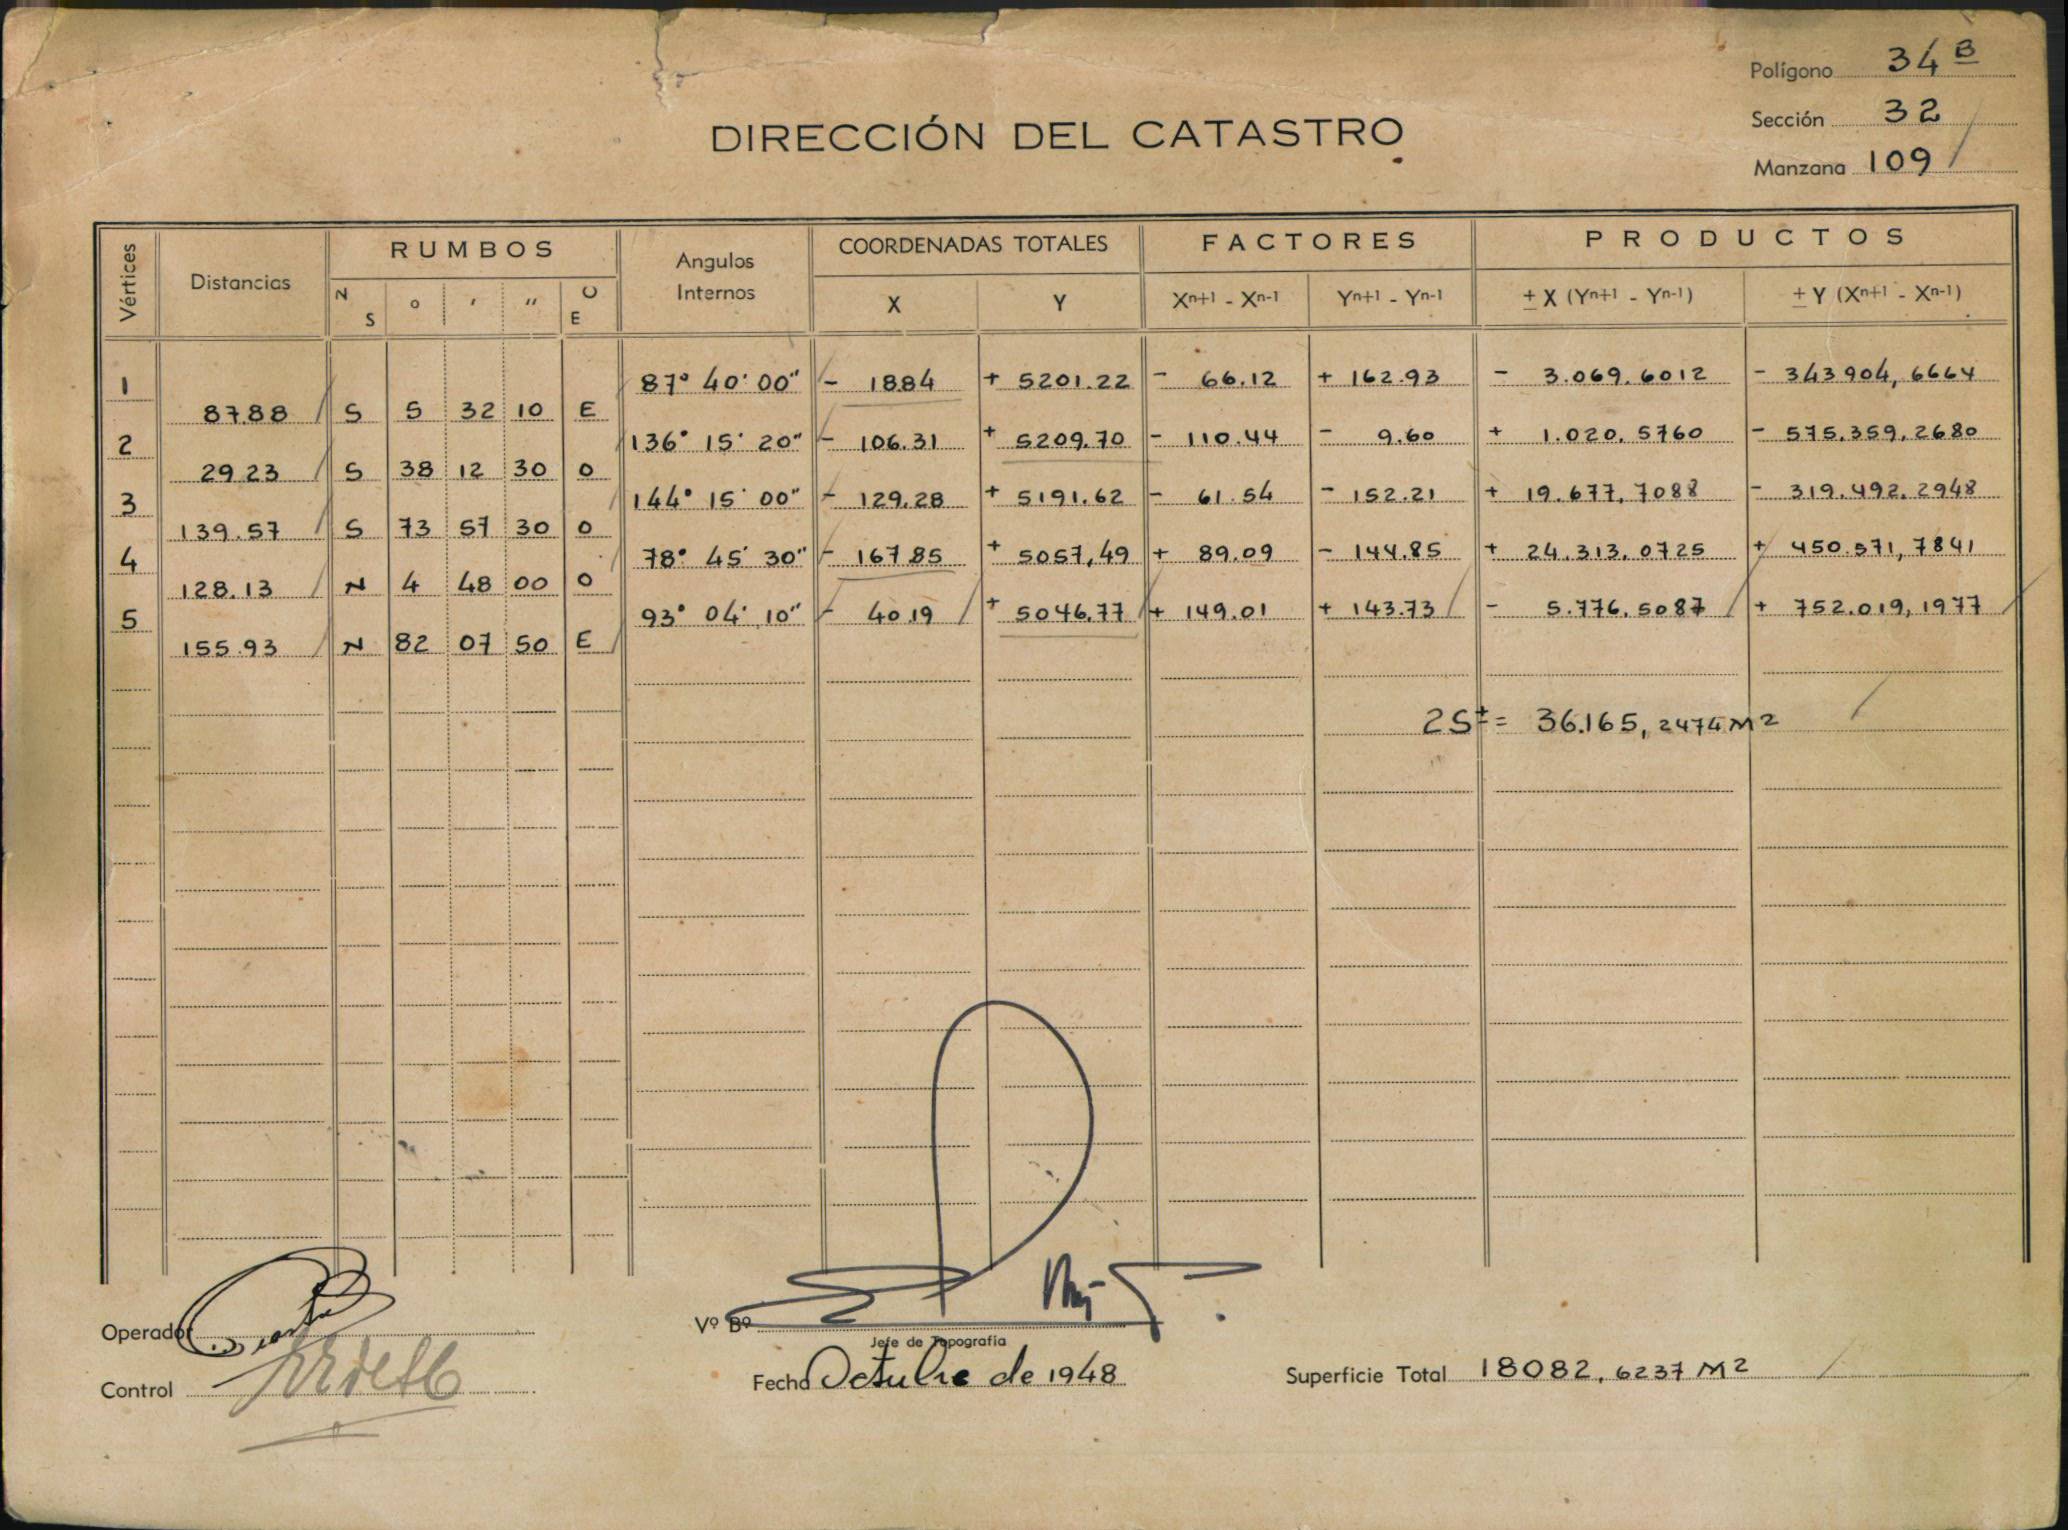 Polígono 34 B
Sección 32
Manzana 109
DIRECCIÓN DEL CATASTRO
Vértices Distancias RUMBOS Angulos Internos COORDENADAS TOTALES FACTORES PRODUCTOS
N S o ' '' O E X Y Xn+1 - Xn-1 Yn+1 - Yn-1 ± X (Yn+1 - Yn-1) ± Y (Xn+1 - Xn-1)
1 87° 40' 00" - 18.84 + 5201.22 - 66.12 + 162.93 - 3.069.6012 - 343904,6664
87.88 S 5 32 10 E
2 136° 15' 20" - 106.31 + 5209.70 - 110.44 - 9.60 + 1.020.5760 - 575.359.2680
29.23 S 38 12 30 O
3 144° 15' 00" - 129.28 + 5191.62 - 61.54 - 152.21 + 19.677,7088 - 319.492.2948
139.57 S 73 57 30 O
4 78° 45' 30" - 167.85 + 5057,49 + 89.09 - 144.85 + 24.313.0725 + 450.571,7841
128.13 N 4 48 00 O
5 93° 04' 10" - 40.19 + 5046.77 + 149.01 + 143.73 - 5.776.5087 + 752.019,1977
155.93 N 82 07 50 E
2S ± = 36.165,2474 M2
Operador
Control
Vº Bº
Jefe de Topografía
Fecha Octubre de 1948
Superficie Total 18082,6237 M2